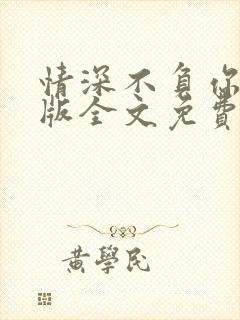 情深不負你
版全文免費
黃學民